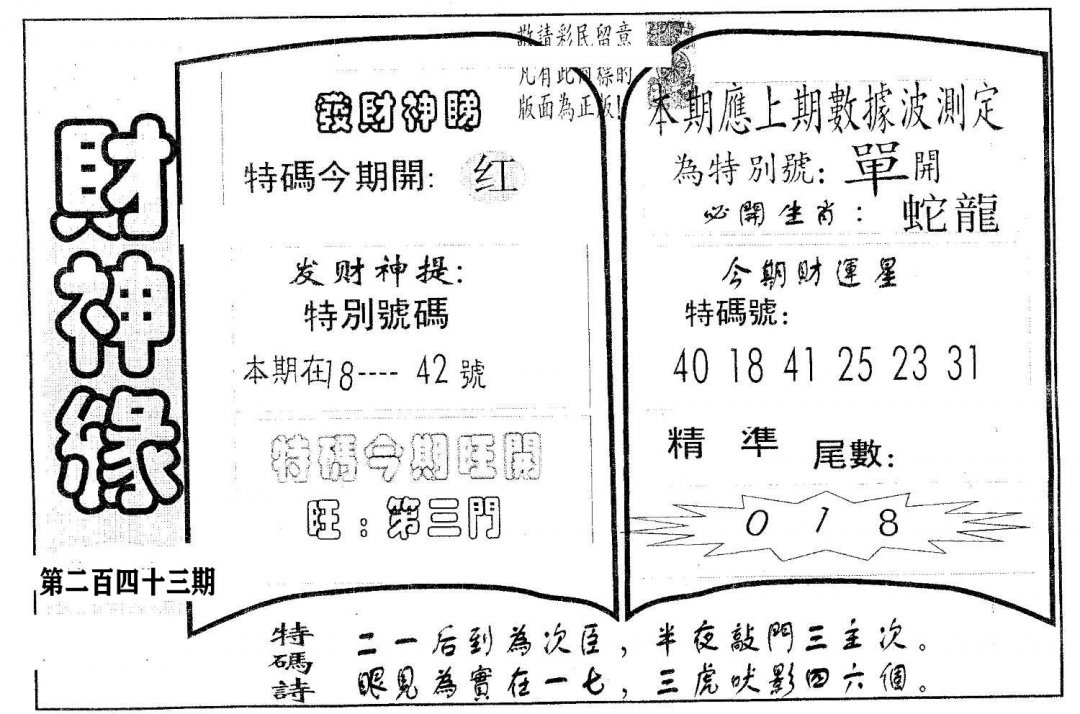 財神緣
第二百四十三期
敬請彩民留意
凡有此同樣的
版面為正版!
發財神賜
特碼今期開: 红
发财神提:
特別號碼
本期在18---- 42號
特碼今期旺開
旺:第三門
本期應上期數據波測定
為特別號:單開
必開生肖: 蛇龍
今期財運星
特碼號:
40 18 41 25 23 31
精 準 尾數:
0 1 8
特碼詩
二一后到為次臣,半夜敲門三主次。
眼見為實在一七,三虎吠影四六個。